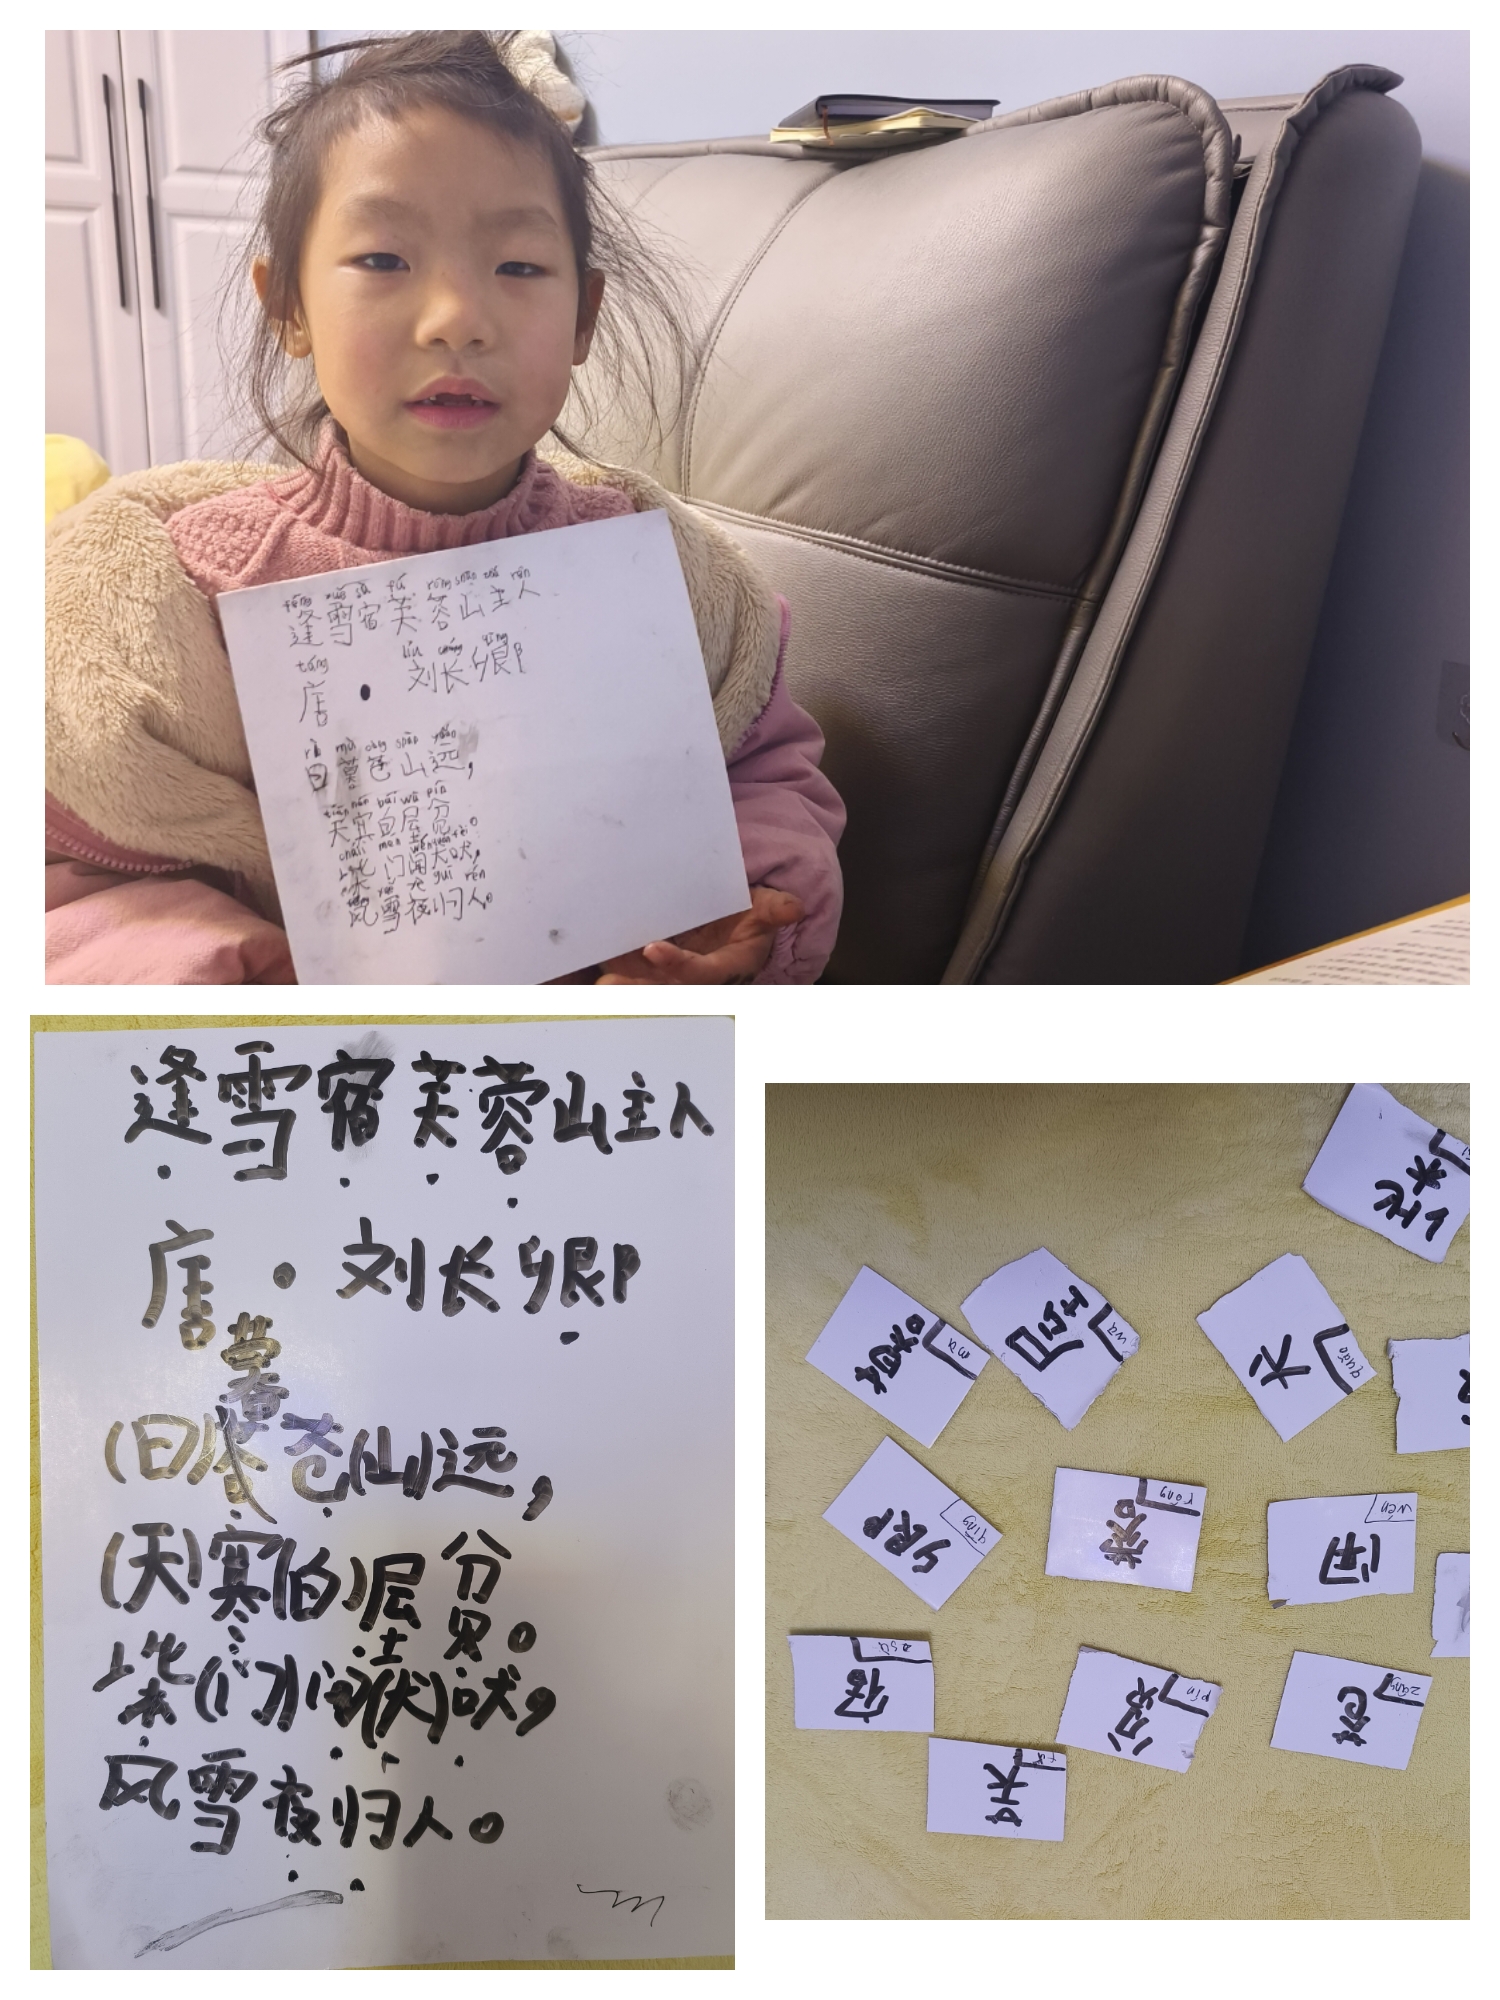 féng xuě sù fú róng shān zhǔ rén
逢雪宿芙蓉山主人
táng liú cháng qīng
唐·刘长卿
rì mù cāng shān yuǎn
日暮苍山远，
tiān hán bái wū pín
天寒白屋贫。
chái mén wén quǎn fèi
柴门闻犬吠，
风雪夜归人。
guī rén
逢雪宿芙蓉山主人
唐·刘长卿
暮
(日)苍(山)远，
(天)寒(白)屋贫。
柴(门)闻(犬)吠，
风雪夜归人。
柴
暮 mù
屋 wū
犬 quǎn
卿 qīng
蓉 róng
闻 wén
宿 sù
贫 pín
苍 zāng
芙 fú